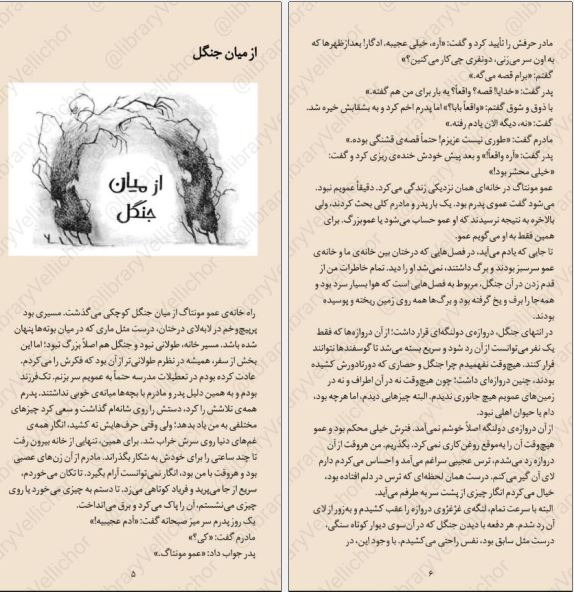 از میان جنگل
از میان
جنگل
راه خانه‌ی عمو مونتاگ از میان جنگل کوچکی می‌گذشت. مسیری بود
پرپیچ‌وخم در لابه‌لای درختان، درست مثل ماری که در میان بوته‌ها پنهان
شده باشد. مسیر خانه، طولانی نبود و جنگل هم اصلاً بزرگ نبود؛ اما این
بخش از سفر، همیشه در نظرم طولانی‌تر از آن بود که فکرش را می‌کردم.
عادت کرده بودم در تعطیلات مدرسه حتماً به عمویم سر بزنم. تک‌فرزند
بودم و به همین دلیل پدر و مادرم با بچه‌ها میانه‌ی خوبی نداشتند. پدرم
همه‌ی تلاشش را کرد، دستش را روی شانه‌ام گذاشت و سعی کرد چیزهای
مختلفی به من یاد بدهد؛ ولی وقتی حرف‌هایش ته کشید، انگار همه‌ی
غم‌های دنیا روی سرش خراب شد. برای همین، تنهایی از خانه بیرون رفت
تا چند ساعتی را برای خودش به شکار بگذراند. مادرم از آن زن‌های عصبی
بود و هروقت با من بود، انگار نمی‌توانست آرام بگیرد. تا تکان می‌خوردم،
سریع از جا می‌پرید و فریاد کوتاهی می‌زد. تا دستم به چیزی می‌خورد یا روی
چیزی می‌نشستم، آن را پاک می‌کرد و برق می‌انداخت.
یک روز پدرم سر میز صبحانه گفت: «آدم عجیبیه!»
مادرم گفت: «کی؟»
پدر جواب داد: «عمو مونتاگ.»
۵
مادر حرفش را تأیید کرد و گفت: «آره، خیلی عجیبه. ادگار! بعدازظهرها که
به اون سر می‌زنی، دونفری چی‌کار می‌کنین؟»
گفتم: «برام قصه می‌گه.»
پدر گفت: «خدایا! قصه؟ واقعاً؟ یه بار برای من هم گفته.»
با ذوق و شوق گفتم: «واقعاً بابا؟» اما پدرم اخم کرد و به بشقابش خیره شد.
گفت: «نه، دیگه الان یادم رفته.»
مادرم گفت: «طوری نیست عزیزم! حتماً قصه‌ی قشنگی بوده.»
پدر گفت: «آره واقعاً!» و بعد پیش خودش خنده‌ی ریزی کرد و گفت:
«خیلی محشر بود!»
عمو مونتاگ در خانه‌ای همان نزدیکی زندگی می‌کرد. دقیقاً عمویم نبود.
می‌شود گفت عموی پدرم بود. یک بار پدر و مادرم کلی بحث کردند، ولی
بالاخره به نتیجه نرسیدند که او عمو حساب می‌شود یا عموبزرگ. برای
همین فقط به او می‌گویم عمو.
تا جایی که یادم می‌آید، در فصل‌هایی که درختان بین خانه‌ی ما و خانه‌ی
عمو سرسبز بودند و برگ داشتند، نمی‌شد او را دید. تمام خاطرات من از
قدم زدن در آن جنگل، مربوط به فصل‌هایی است که هوا بسیار سرد بود و
همه‌جا را برف و یخ گرفته بود و برگ‌ها همه روی زمین ریخته و پوسیده
بودند.
در انتهای جنگل، دروازه‌ی دولنگه‌ای قرار داشت؛ از آن دروازه‌ها که فقط
یک نفر می‌توانست از آن رد شود و سریع بسته می‌شد تا گوسفندها نتوانند
فرار کنند. هیچ‌وقت نفهمیدم چرا جنگل و حصاری که دورتادورش کشیده
بودند، چنین دروازه‌ای داشت؛ چون هیچ‌وقت نه در آن اطراف و نه در
زمین‌های عمویم هیچ جانوری ندیدم. البته چیزهایی دیدم، اما هرچه بود،
دام یا حیوان اهلی نبود.
از آن دروازه‌ی دولنگه اصلاً خوشم نمی‌آمد. فنرش خیلی محکم بود و عمو
هیچ‌وقت آن را به‌موقع روغن‌کاری نمی‌کرد. بگذریم. من هروقت از آن
دروازه رد می‌شدم، ترس عجیبی سراغم می‌آمد و احساس می‌کردم دارم
لای آن گیر می‌کنم. درست همان لحظه‌ای که ترس در دلم افتاده بود،
خیال می‌کردم انگار چیزی از پشت سر به طرفم می‌آید.
البته با سرعت تمام، لنگه‌ی غژغژوی دروازه را عقب کشیدم و به‌زور از لای
آن رد شدم. هر دفعه با دیدن جنگل که در آن‌سوی دیوار کوتاه سنگی،
درست مثل سابق بود، نفس راحتی می‌کشیدم. با وجود این، در
۶
@libraryVellichor